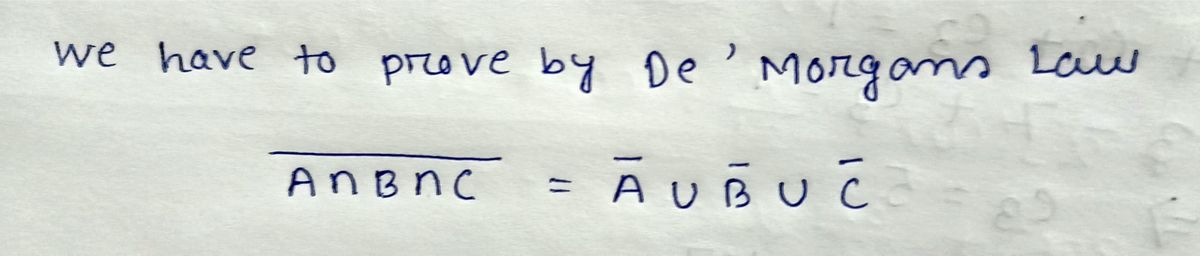 We have to prove by De' Morgans Law
$\overline{A \cap B \cap C} = \bar{A} \cup \bar{B} \cup \bar{C}$